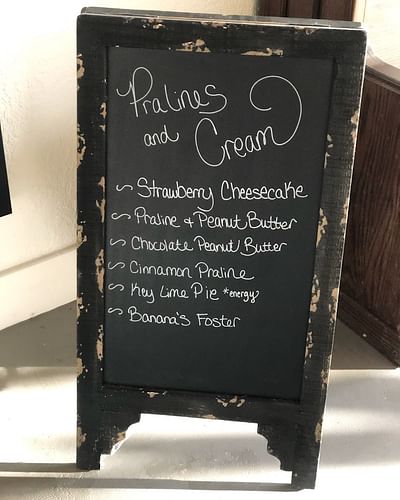 Pralines
and Cream
~ Strawberry Cheesecake
~ Praline & Peanut Butter
~ Chocolate Peanut Butter
~ Cinnamon Praline
~ Key Lime Pie *energy
~ Banana's Foster